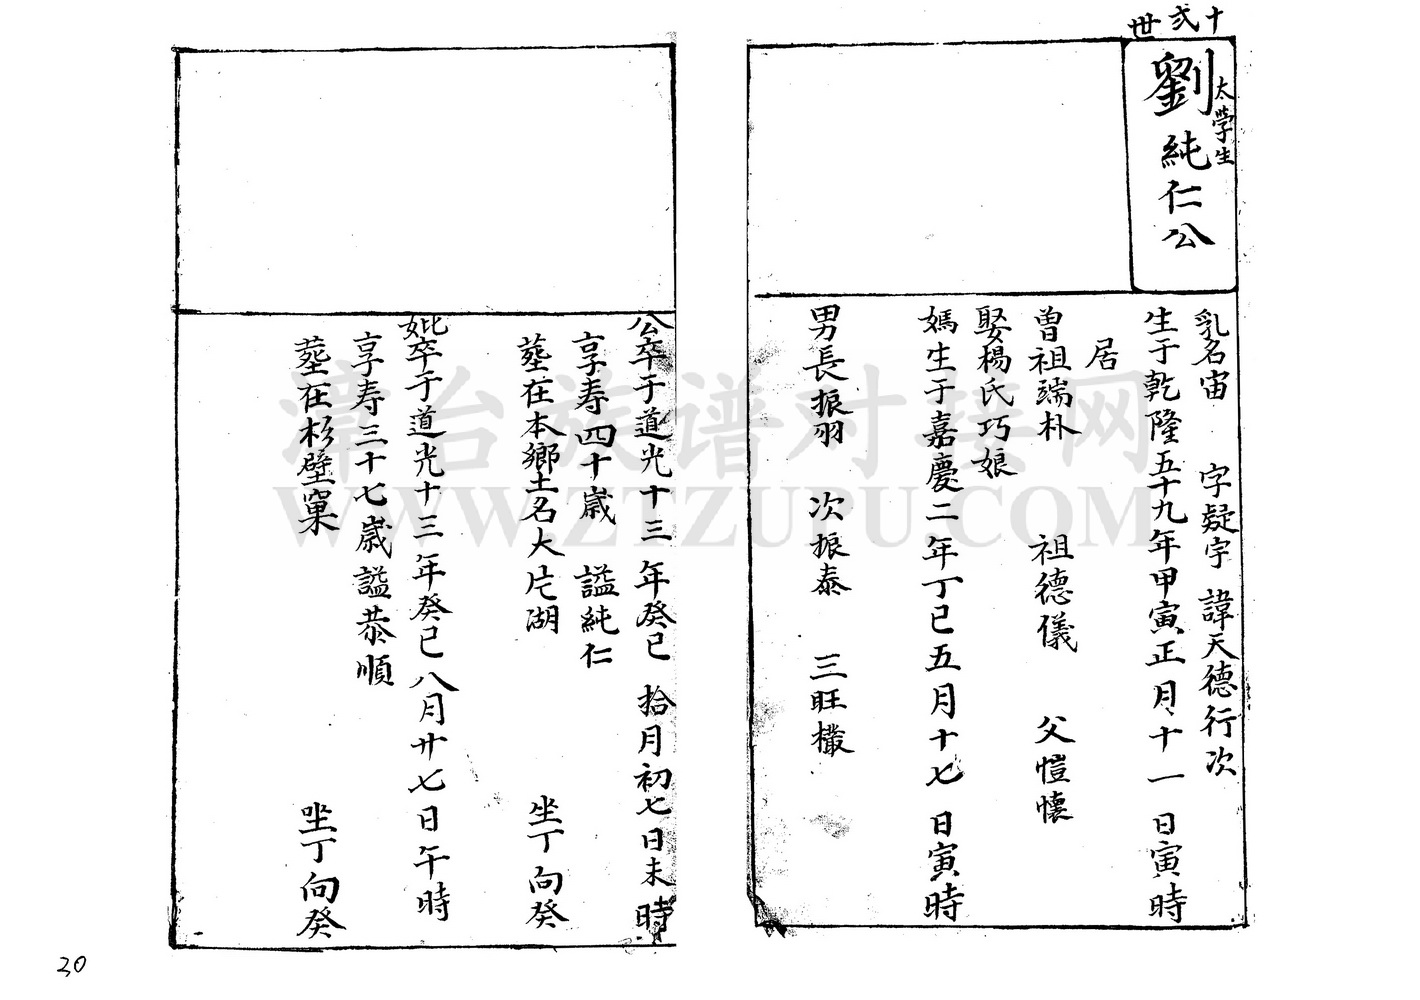 十弍世
太學生
劉純仁公
乳名宙 字疑宇 諱天德行次
生于乾隆五十九年甲寅正月十一日寅時
居
曾祖端朴 祖德儀 父愷懷
娶楊氏巧娘
媽生于嘉慶二年丁巳五月十七日寅時
男長振羽 次振泰 三旺欉
公卒于道光十三年癸巳拾月初七日未時
享寿四十歲 謚純仁
塟在本鄉土名大片湖 坐丁向癸
妣卒于道光十三年癸巳八月廿七日午時
享寿三十七歲謚恭順
塟在杉壁窠 坐丁向癸
漳台族谱对接网
WWW.ZTZUPU.COM
20